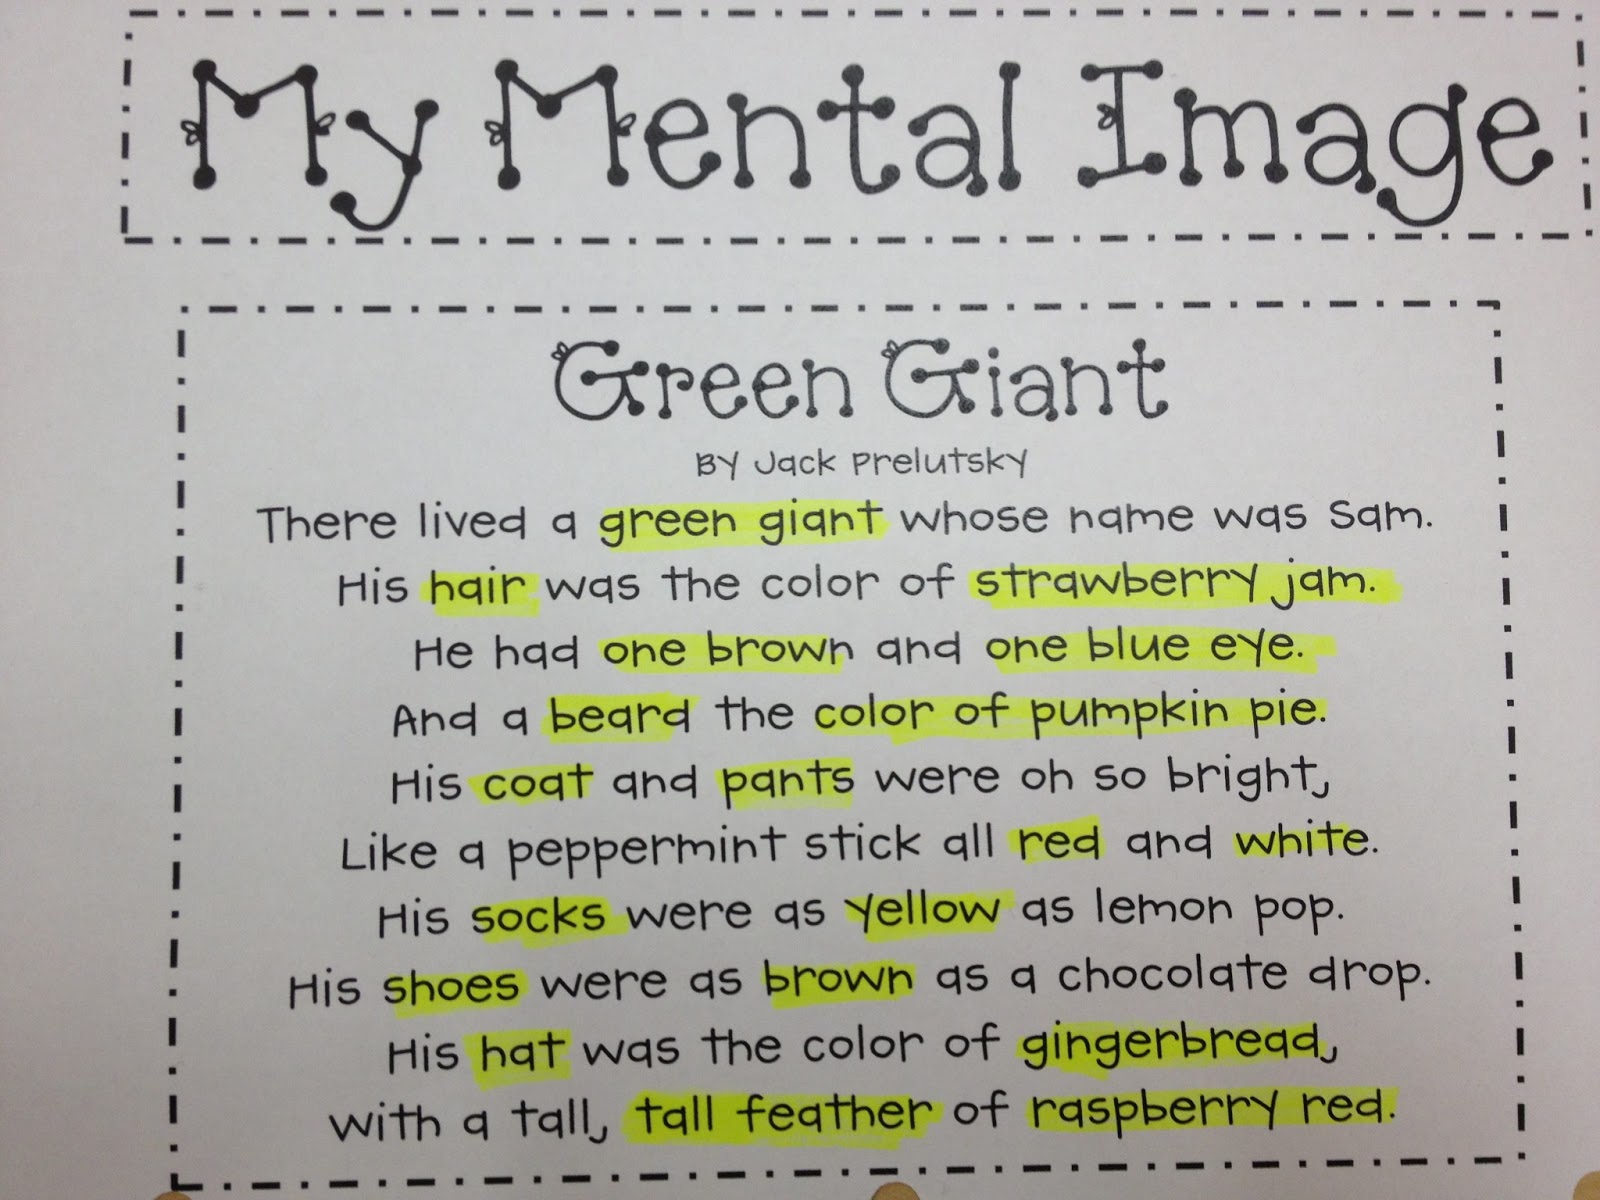 My Mental Image
Green Giant
By Jack Prelutsky
There lived a green giant whose name was Sam.
His hair was the color of strawberry jam.
He had one brown and one blue eye.
And a beard the color of pumpkin pie.
His coat and pants were oh so bright,
Like a peppermint stick all red and white.
His socks were as yellow as lemon pop.
His shoes were as brown as a chocolate drop.
His hat was the color of gingerbread,
with a tall, tall feather of raspberry red.